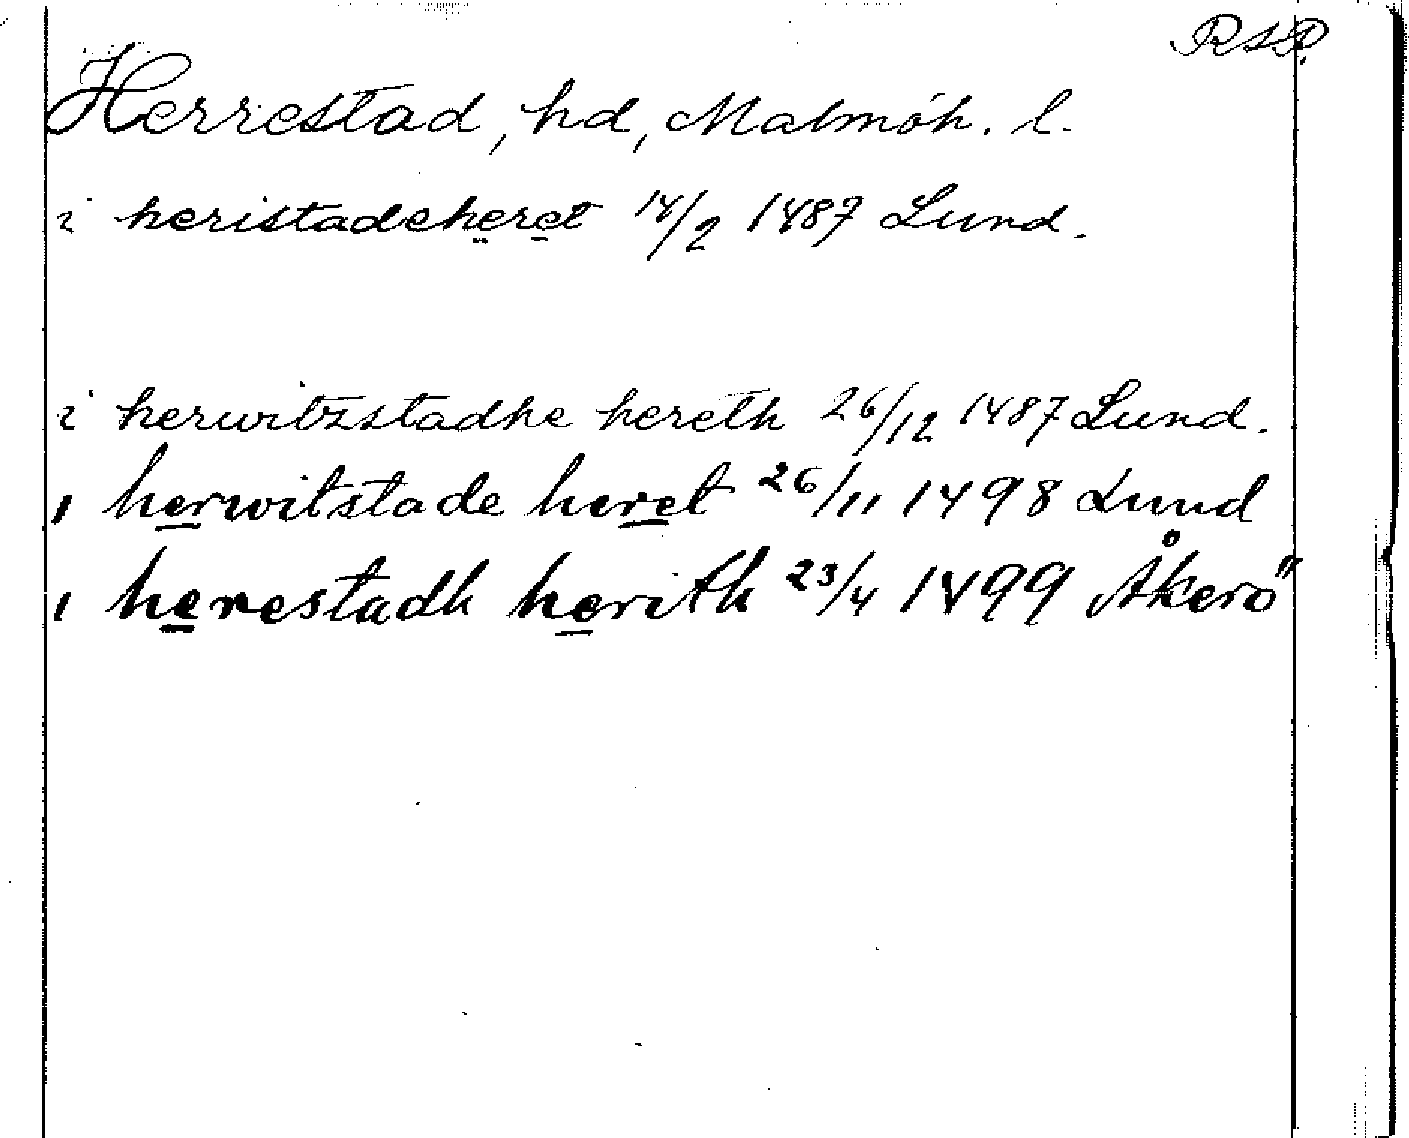 RAP.
Herrestad, hd, Malmöh. l.
i heristadeheret 14/2 1487 Lund.
i herwitzstadhe hereth 26/12 1487 Lund.
i herwitstade heret 26/11 1498 Lund
i herestadh herith 23/4 1499 Åkerö